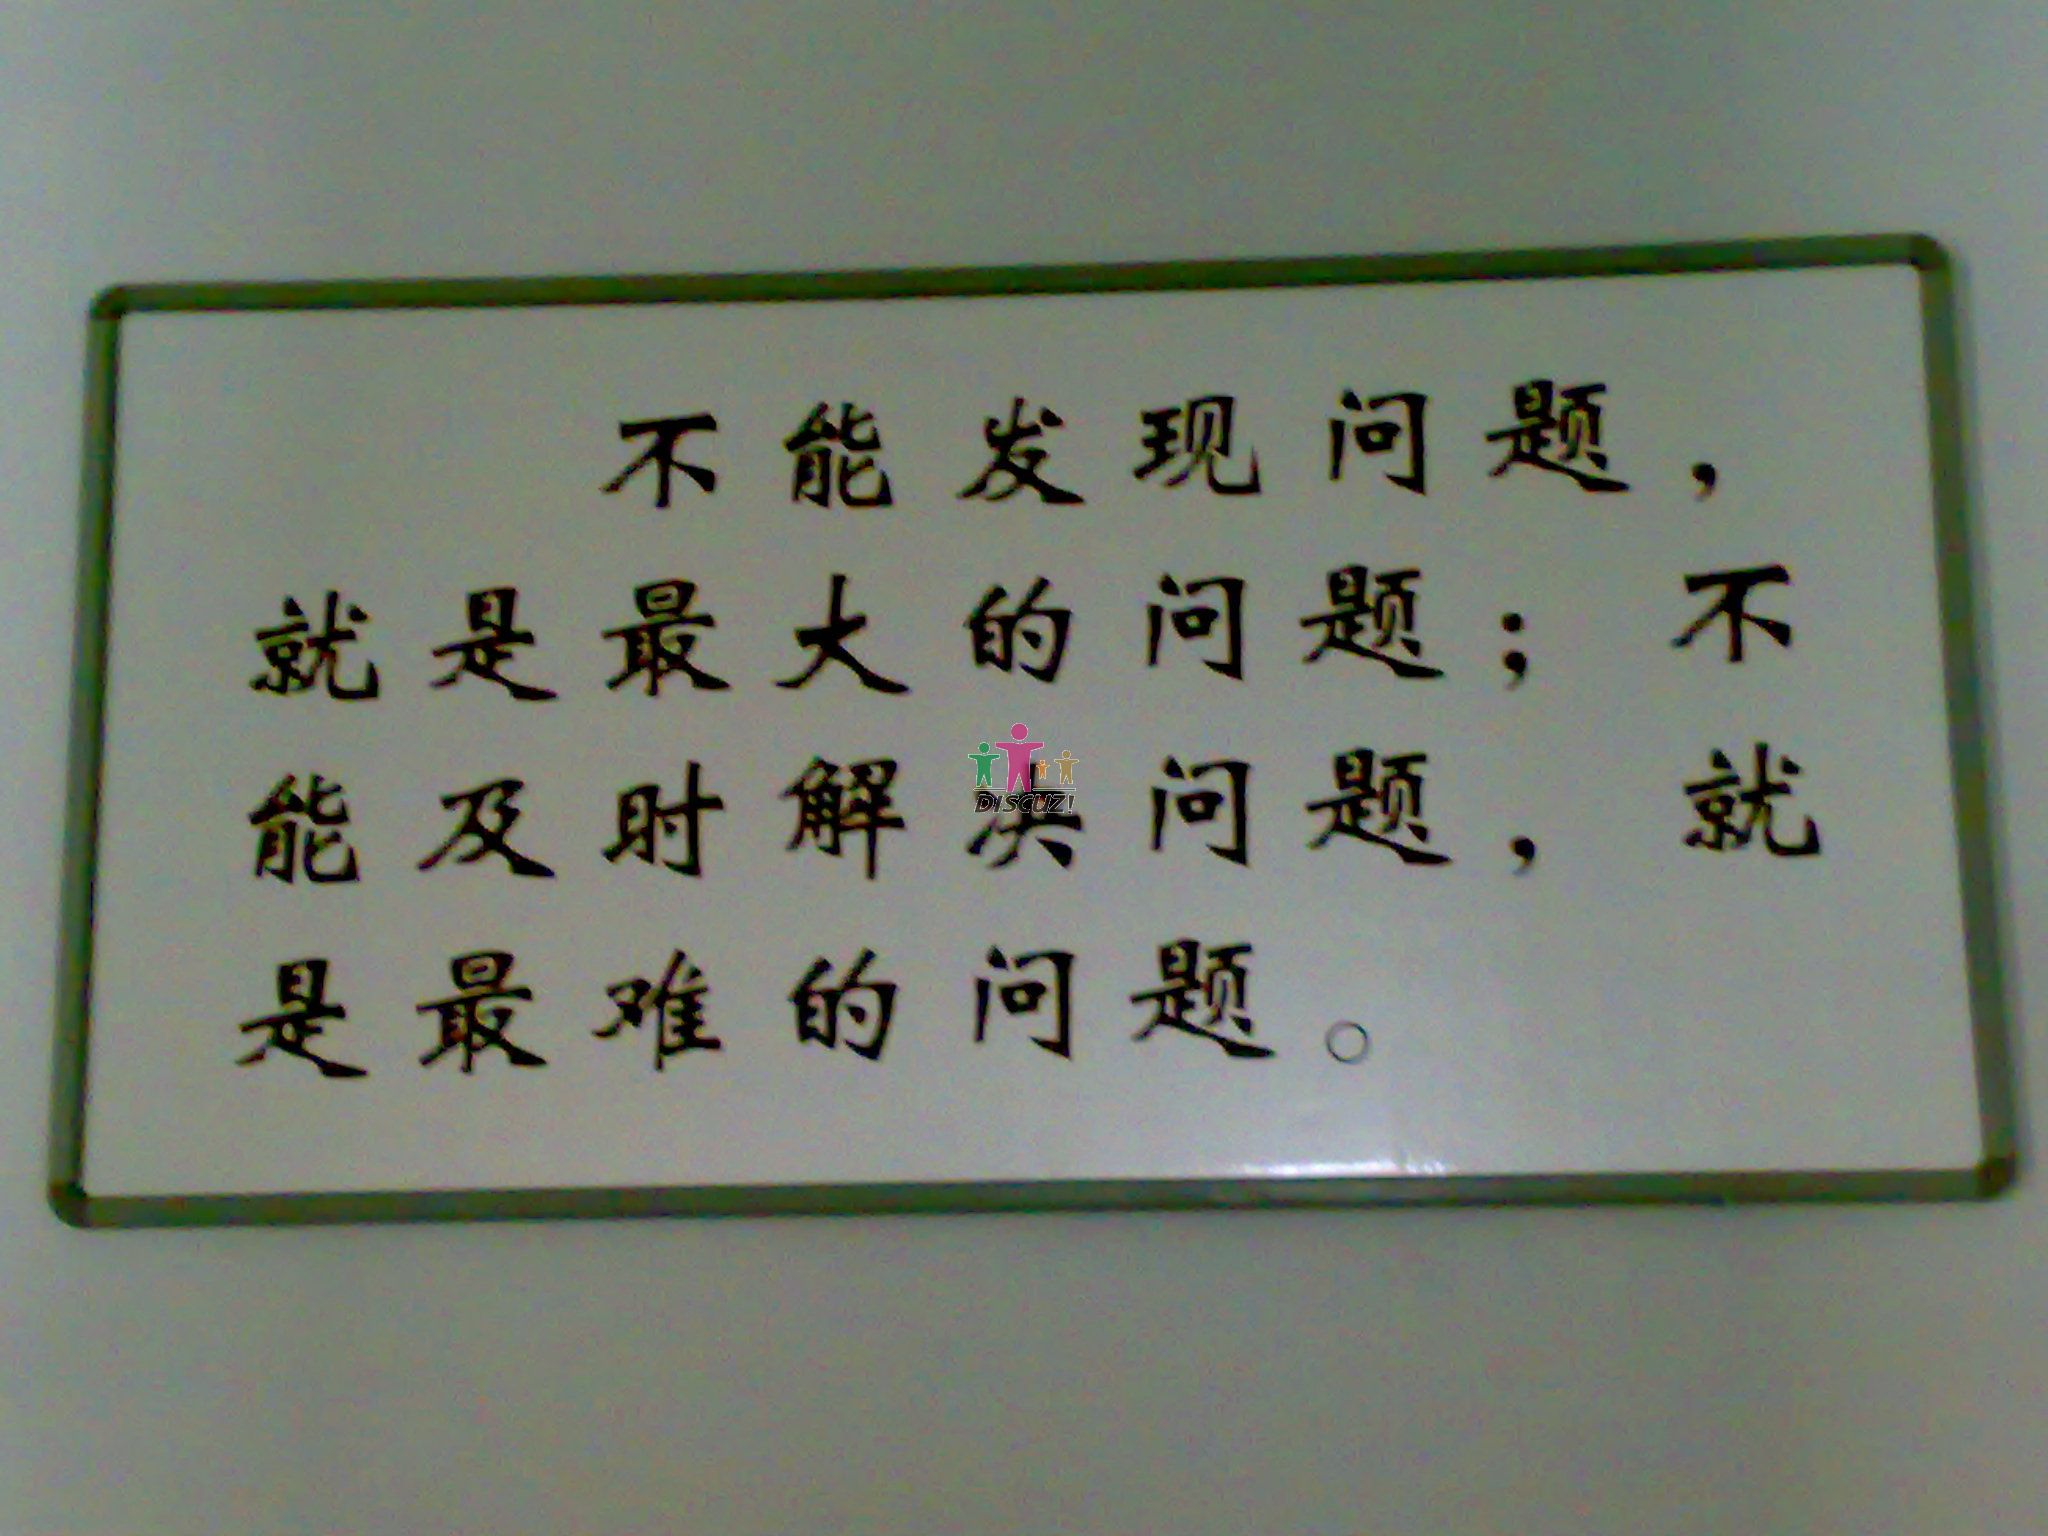 不能发现问题，
就是最大的问题；不
能及时解决问题，就
是最难的问题。
DISCUZ!